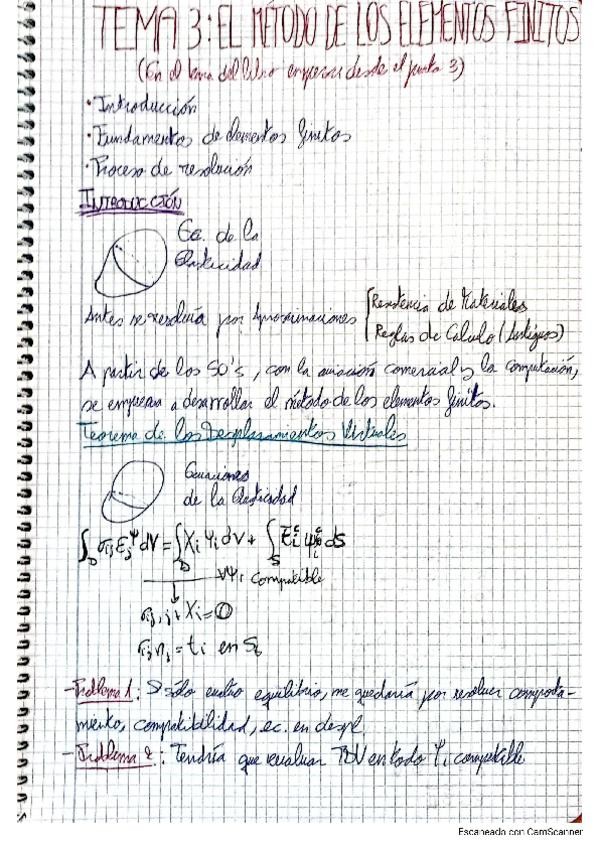 TEMA 3: EL MÉTODO DE LOS ELEMENTOS FINITOS
(En el tema del libro empezar desde el punto 3)
· Introducción
· Fundamentos de elementos finitos
· Proceso de resolución
INTRODUCCIÓN
Ec. de la
Elasticidad
Antes se resolvía por Aproximaciones { Resistencia de Materiales
Reglas de Cálculo (Antiguos)
A partir de los 50's, con la aviación comercial y la computación,
se empieza a desarrollar el método de los elementos finitos.
Teorema de los Desplazamientos Virtuales
Ecuaciones
de la Elasticidad
∫_D σij εij^ψ dV = ∫_D Xi ψi dV + ∫_S ti^c ψi^c ds
∀ψi compatible
σij,j + Xi = 0
σij nj = ti en St
- Problema 1: Sólo evalúo equilibrio, me quedaría por resolver comporta-
miento, compatibilidad, ec. en despl.
- Problema 2: Tendría que evaluar TDV en todo ψi compatible
Escaneado con CamScanner